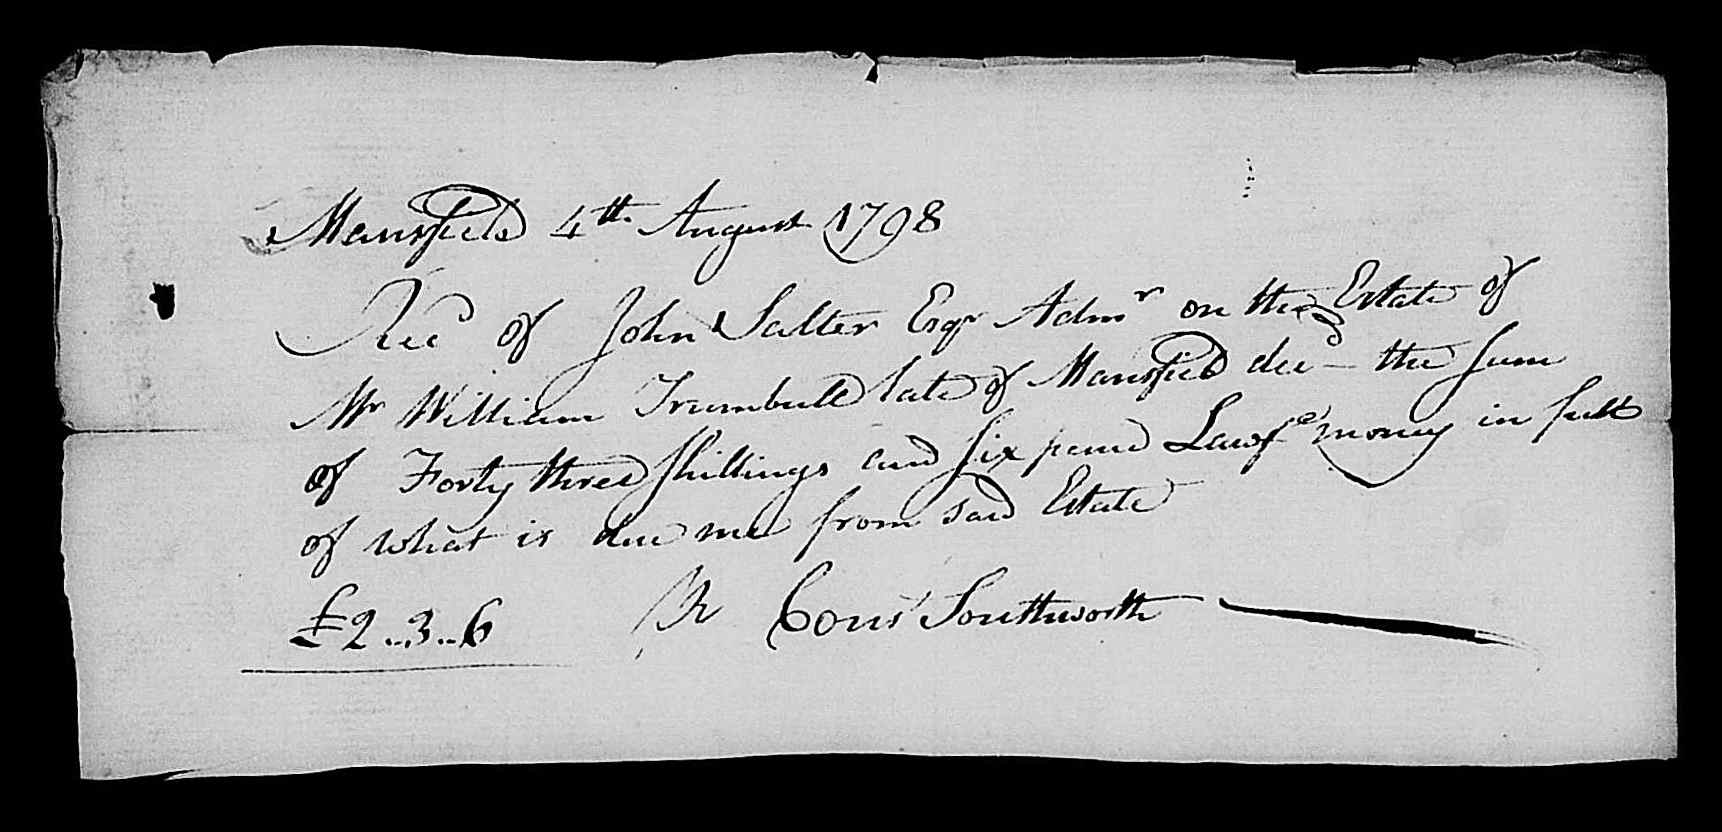 Mansfield 4th August 1798
Recd of John Salter Esqr Admr on the Estate of
Mr William Trumbull late of Mansfield decd - the Sum
of Forty three Shillings and Six pence Lawf money in full
of what is due me from said Estate
£2..3..6 Cons Southworth